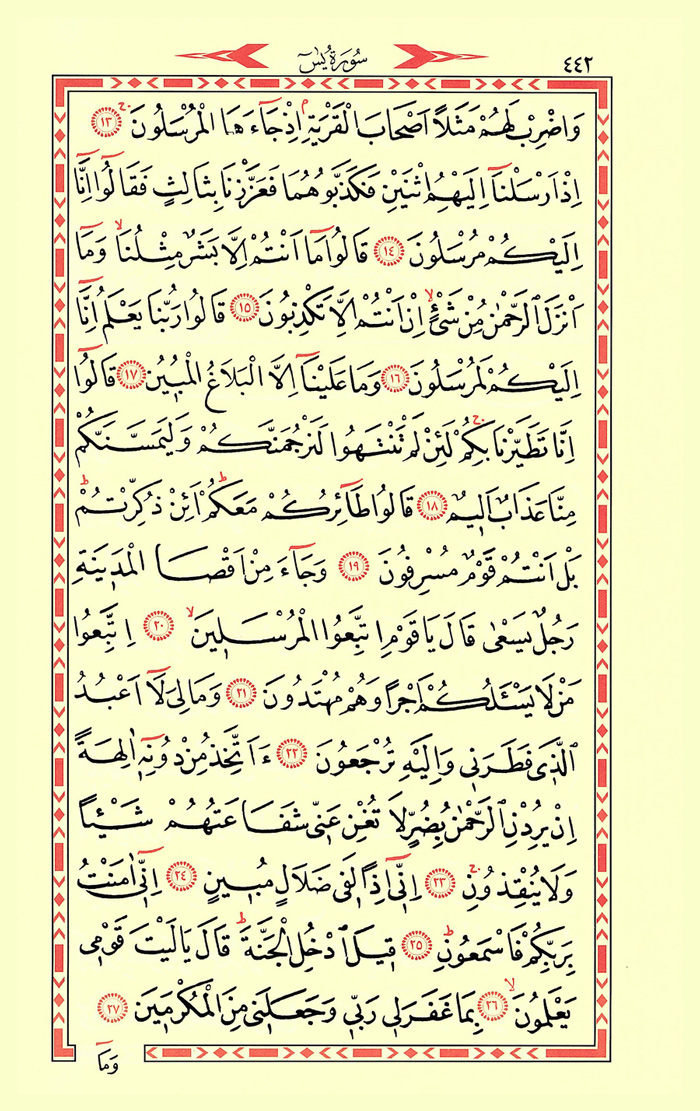 سُورَةُ يٰسٓ ٤٤٢
وَاضْرِبْ لَهُمْ مَثَلًا اَصْحَابَ الْقَرْيَةِۢ اِذْ جَٓاءَهَا الْمُرْسَلُونَۚ ﴿١٣﴾
اِذْ اَرْسَلْنَٓا اِلَيْهِمُ اثْنَيْنِ فَكَذَّبُوهُمَا فَعَزَّزْنَا بِثَالِثٍ فَقَالُٓوا اِنَّٓا
اِلَيْكُمْ مُرْسَلُونَ ﴿١٤﴾ قَالُوا مَٓا اَنْتُمْ اِلَّا بَشَرٌ مِثْلُنَاۙ وَمَٓا
اَنْزَلَ الرَّحْمٰنُ مِنْ شَيْءٍۙ اِنْ اَنْتُمْ اِلَّا تَكْذِبُونَ ﴿١٥﴾ قَالُوا رَبُّنَا يَعْلَمُ اِنَّٓا
اِلَيْكُمْ لَمُرْسَلُونَ ﴿١٦﴾ وَمَا عَلَيْنَٓا اِلَّا الْبَلَاغُ الْمُبٖينُ ﴿١٧﴾ قَالُٓوا
اِنَّا تَطَيَّرْنَا بِكُمْۚ لَئِنْ لَمْ تَنْتَهُوا لَنَرْجُمَنَّكُمْ وَلَيَمَسَّنَّكُمْ
مِنَّا عَذَابٌ اَلٖيمٌ ﴿١٨﴾ قَالُوا طَٓائِرُكُمْ مَعَكُمْؕ اَئِنْ ذُكِّرْتُمْؕ
بَلْ اَنْتُمْ قَوْمٌ مُسْرِفُونَ ﴿١٩﴾ وَجَٓاءَ مِنْ اَقْصَا الْمَدٖينَةِ
رَجُلٌ يَسْعٰى قَالَ يَا قَوْمِ اتَّبِعُوا الْمُرْسَلٖينَۙ ﴿٢٠﴾ اِتَّبِعُوا
مَنْ لَا يَسْـَٔلُكُمْ اَجْرًا وَهُمْ مُهْتَدُونَ ﴿٢١﴾ وَمَا لِيَ لَٓا اَعْبُدُ
الَّذٖى فَطَرَنٖى وَاِلَيْهِ تُرْجَعُونَ ﴿٢٢﴾ ءَاَتَّخِذُ مِنْ دُونِهٖٓ اٰلِهَةً
اِنْ يُرِدْنِ الرَّحْمٰنُ بِضُرٍّ لَا تُغْنِ عَنّٖى شَفَاعَتُهُمْ شَيْـًٔا
وَلَا يُنْقِذُونِۚ ﴿٢٣﴾ اِنّٖٓى اِذًا لَفٖى ضَلَالٍ مُبٖينٍ ﴿٢٤﴾ اِنّٖٓى اٰمَنْتُ
بِرَبِّكُمْ فَاسْمَعُونِؕ ﴿٢٥﴾ قٖيلَ ادْخُلِ الْجَنَّةَؕ قَالَ يَا لَيْتَ قَوْمٖى
يَعْلَمُونَۙ ﴿٢٦﴾ بِمَا غَفَرَ لٖى رَبّٖى وَجَعَلَنٖى مِنَ الْمُكْرَمٖينَ ﴿٢٧﴾
وَمَٓا